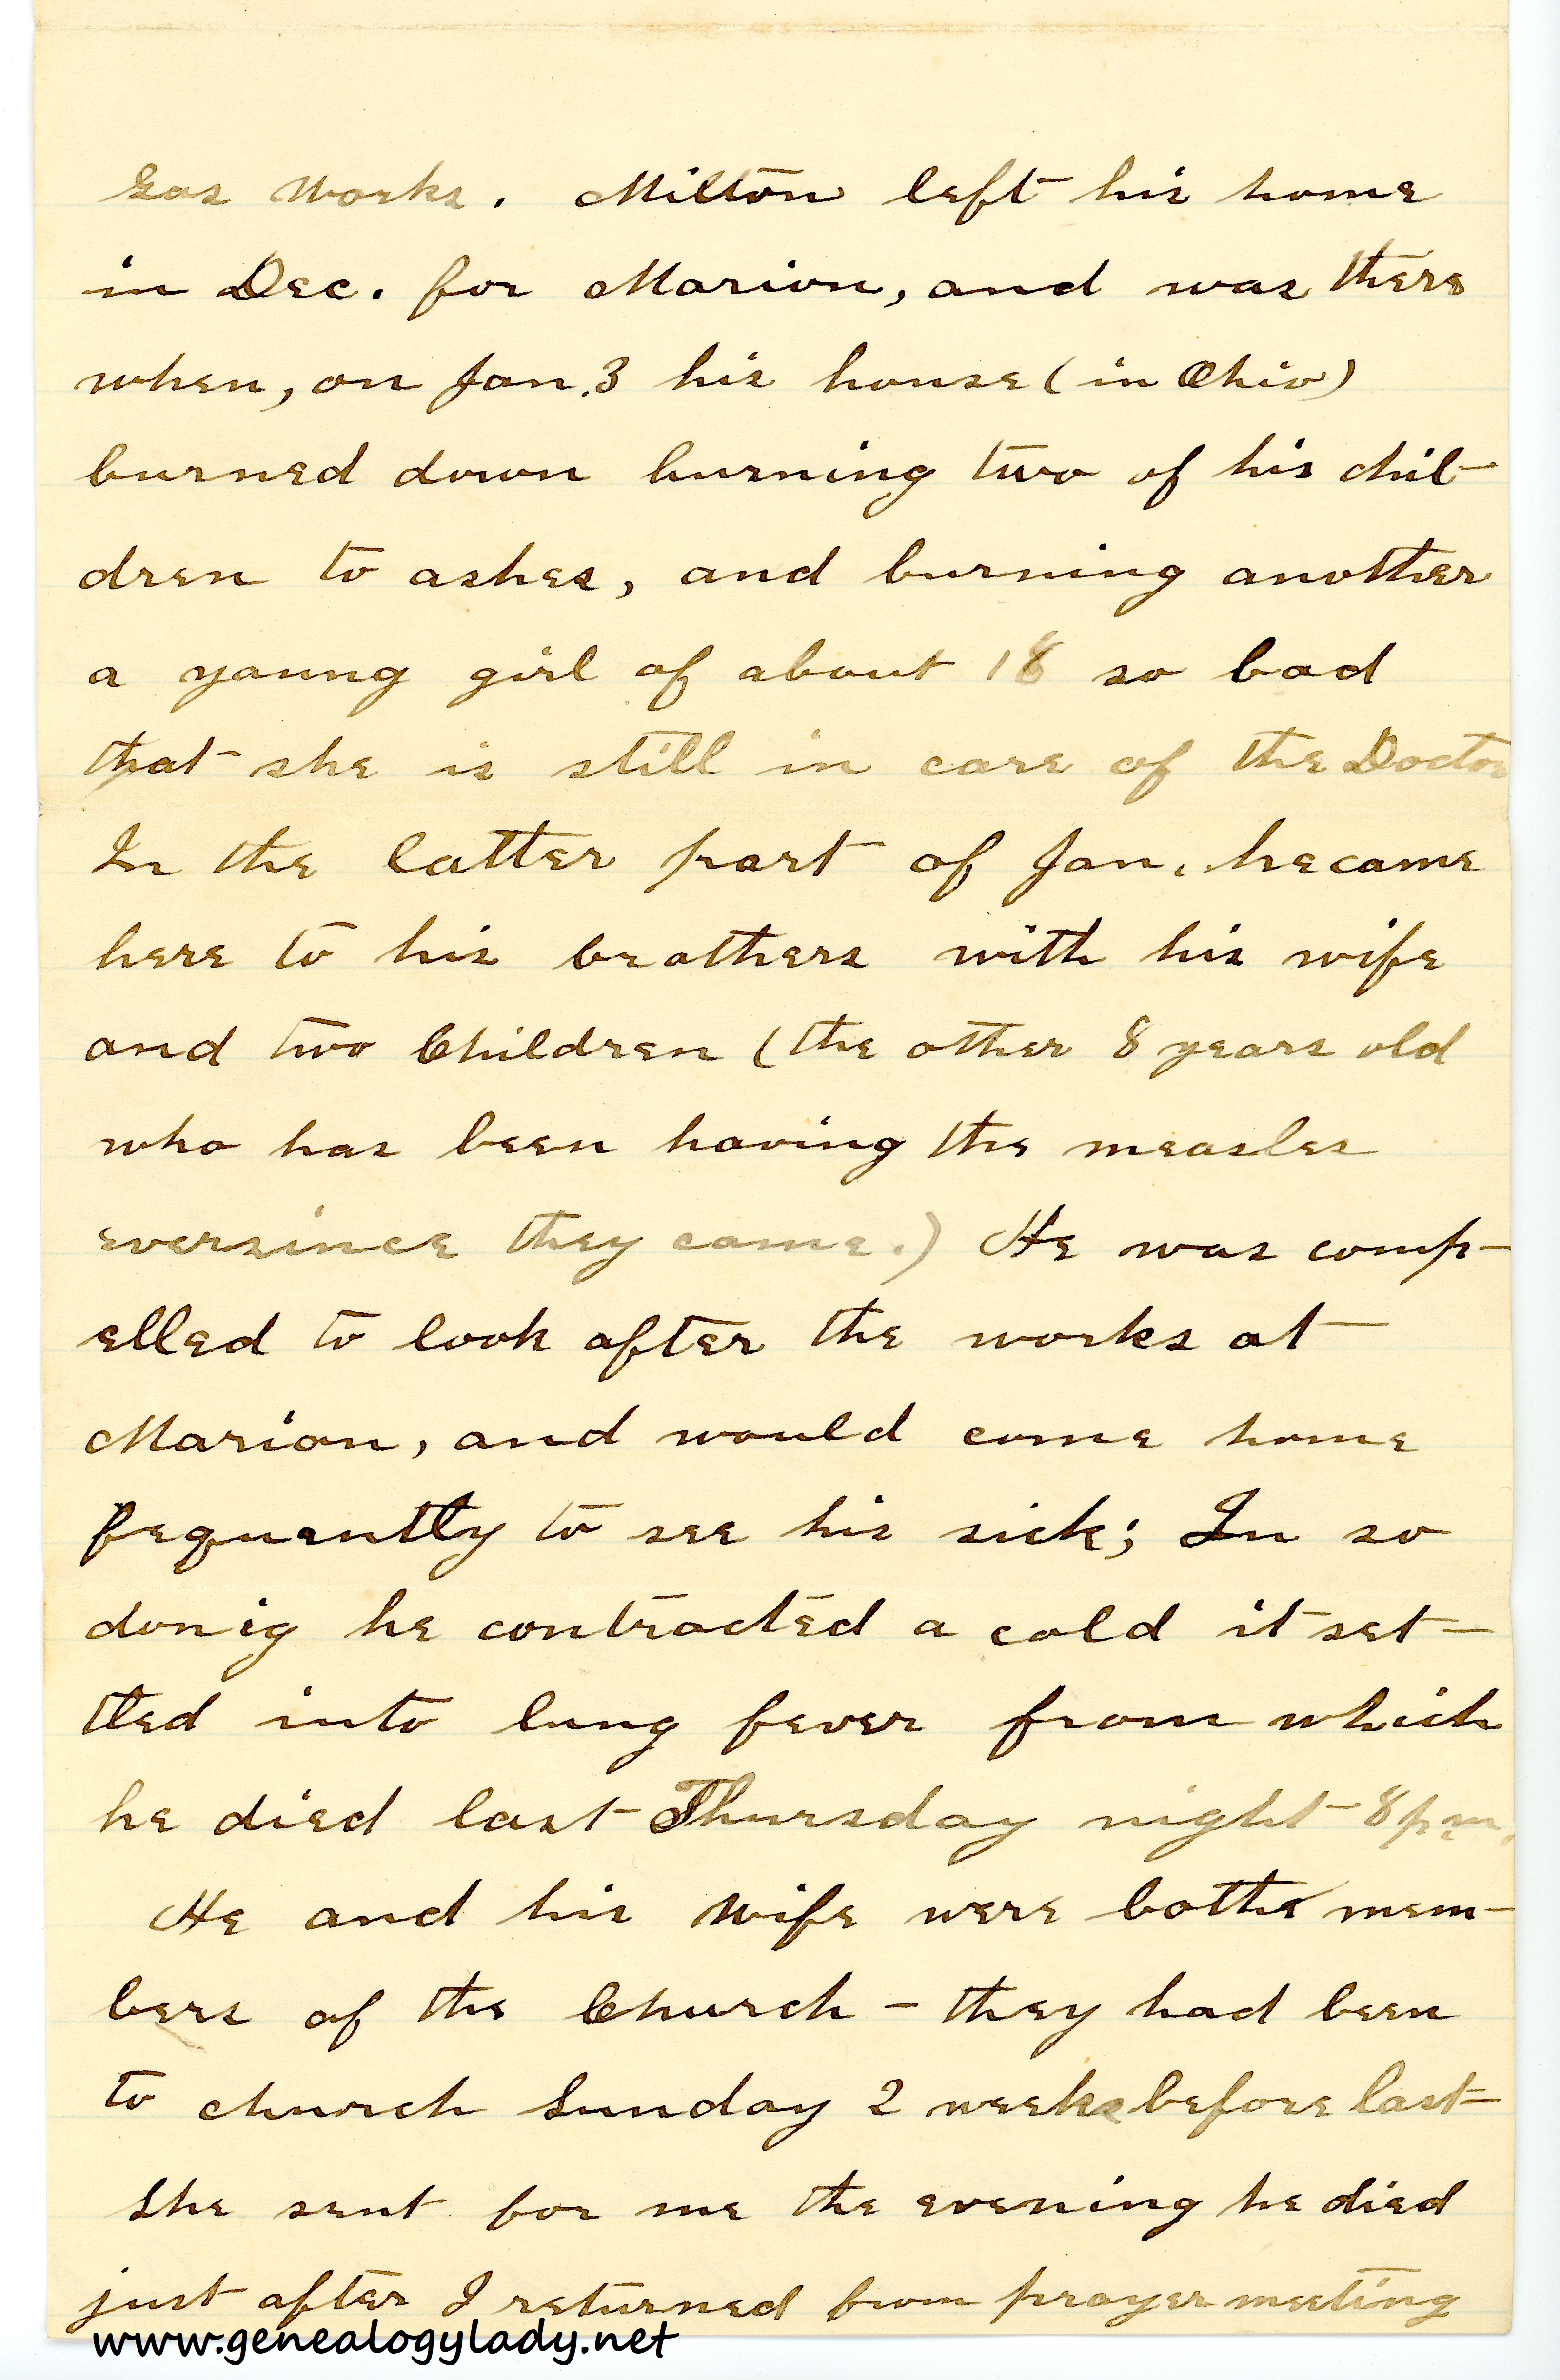 Gas Works. Milton left his home
in Dec. for Marion, and was there
when, on Jan. 3 his house (in Ohio)
burned down burning two of his chil-
dren to ashes, and burning another
a young girl of about 18 so bad
that she is still in care of the Doctor
In the latter part of Jan. he came
here to his brothers with his wife
and two Children (the other 8 years old
who has been having the measles
eversince they came.) He was comp-
elled to look after the works at
Marion, and would come home
fequently to see his sick; In so
donig he contracted a cold it set-
tled into lung fever from which
he died last Thursday night 8 p.m.
He and his Wife were bothe mem-
bers of the Church - they had been
to church Sunday 2 weeks before last
She sent for me the evening he died
just after I returned from prayer meeting
www.genealogylady.net